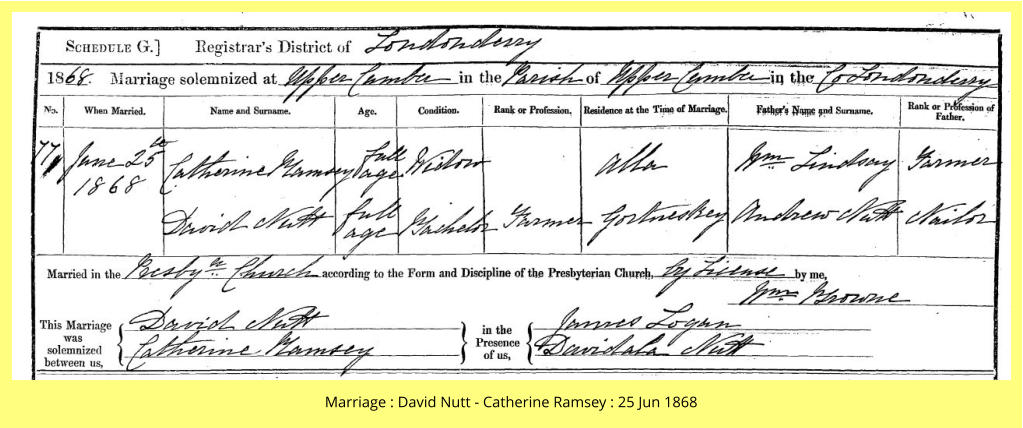 SCHEDULE G.] Registrar's District of Londonderry
1868. Marriage solemnized at Upper Cumber in the Parish of Upper Cumber in the Co Londonderry
No. When Married. Name and Surname. Age. Condition. Rank or Profession. Residence at the Time of Marriage. Father's Name and Surname. Rank or Profession of Father.
77 June 25th 1868 Catherine Ramsey full age Widow Alla Wm Lindsay Farmer
David Nutt full age Bachelor Farmer Gortneskey Andrew Nutt Nailor
Married in the Presbyn Church according to the Form and Discipline of the Presbyterian Church, by License by me,
Wm Browne
This Marriage was solemnized between us, David Nutt
Catherine Ramsey
in the Presence of us, James Logan
Nutt
Marriage : David Nutt - Catherine Ramsey : 25 Jun 1868